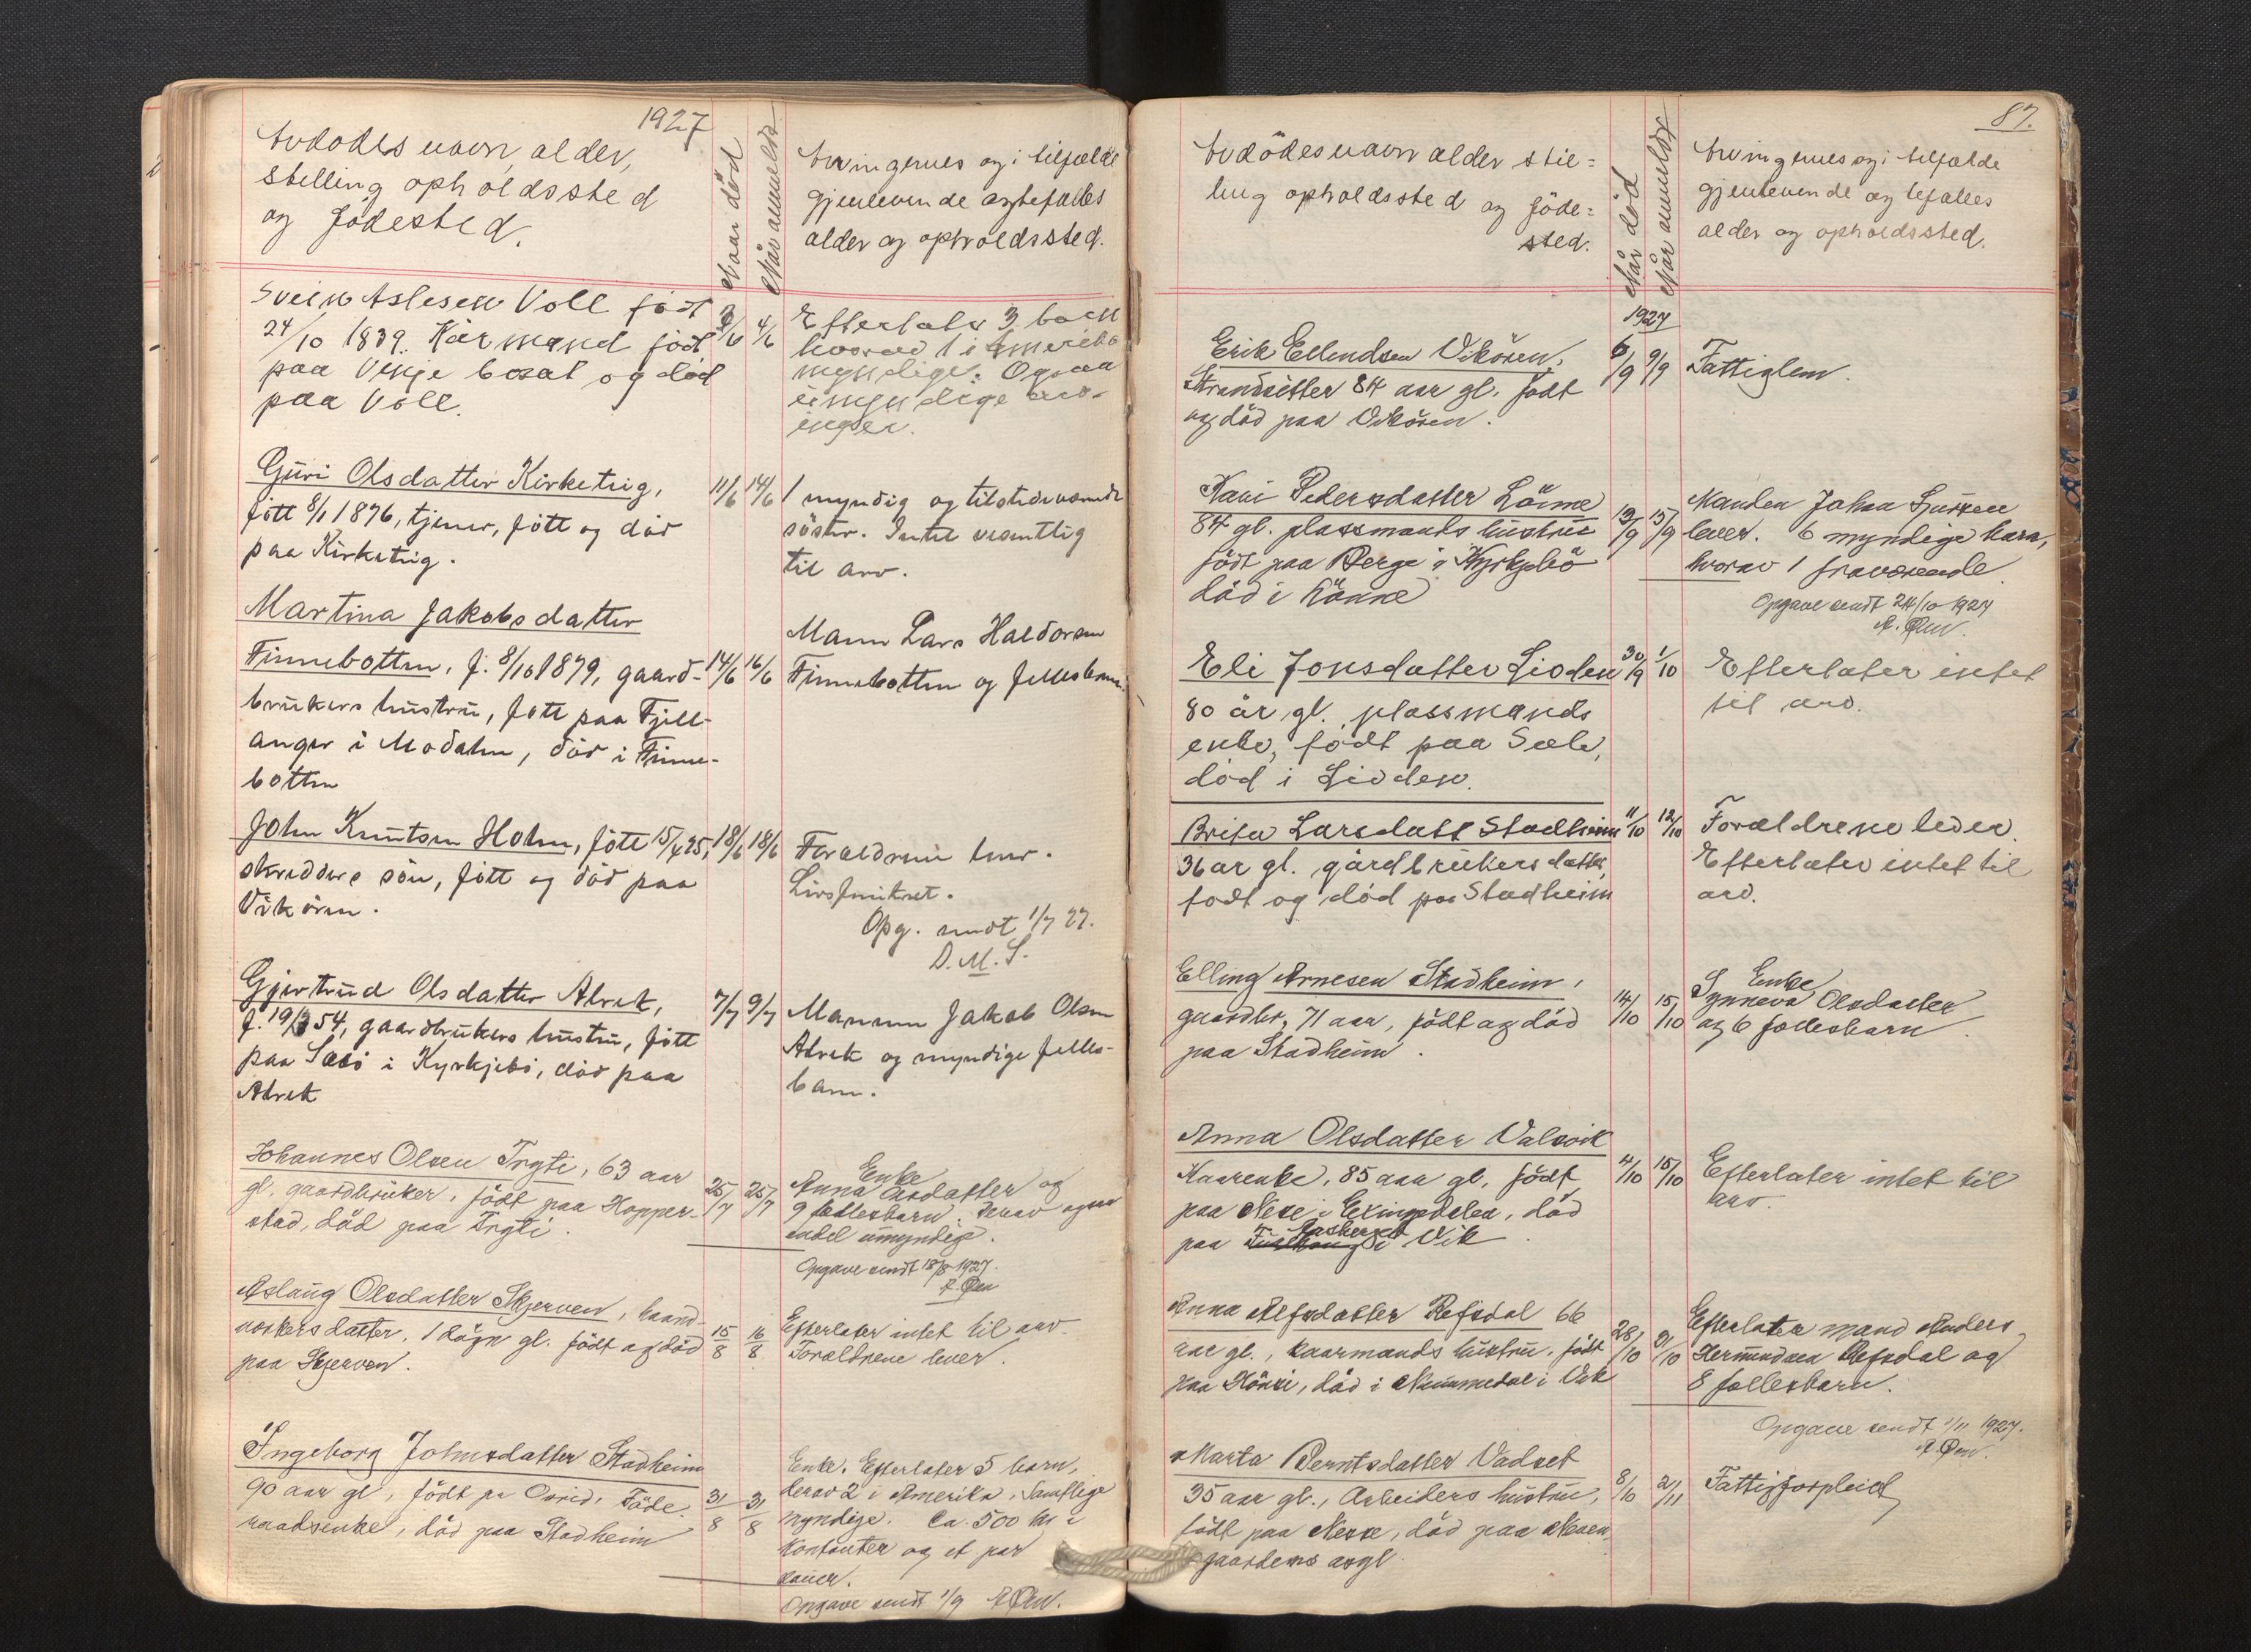 1927
Avdødes navn, alder,
stelling opholdssted
og Födested.
Naar död
Når anmeldt
Arvingernes og i tilfælde
gjenlevende egtefælles
alder og opholdssted.
Svein Aslesen Voll född
24/10 1839. Kårmand född
paa Vinje bosat og död
paa Voll.
3/6 4/6
Efterlater 3 barn
hvorav 1 i Amerika
myndige. Ogsaa
umyndige arv-
inger.
Guri Olsdatter Kirketeig,
fött 8/1 1876, tjener, fött og död
paa Kirketeig.
11/6 14/6
1 myndig og tilstedeværende
söster. Intet vesentlig
til arv.
Martina Jakobsdatter
Finnebotten, f. 8/10 1879, gaard-
brukers hustru, fött paa Fjell-
anger i Modalen, död i Finne-
botten
14/6 16/6
Mann Lars Haldorsen
Finnebotten og fellesbarn.
John Knutsen Holen, fött 15/4 25,
skredders sön, fött og död paa
Vikören.
18/6 18/6
Foreldrene lever.
Livsforsikret.
Opg. sendt 1/7 27.
D.M.S.
Gjertrud Olsdatter Alrek,
f. 19/3 54, gaardbrukers hustru, fött
paa Sæbö i Kyrkjebö, död paa
Alrek
7/7 9/7
Mannen Jakob Olsen
Alrek og myndige felles-
barn.
Johannes Olsen Trygti, 63 aar
gl. gaardbruker, född paa Hopper-
stad, död paa Trygti.
25/7 25/7
Enke
Anna Olsdatter og
9 fællesbarn, derav ogsaa
endel umyndige.
Opgave sendt 18/8 1927.
A. Øen
Aslaug Olsdatter Skjerven, haand-
verkers datter, 1 dögn gl. född og död
paa Skjerven.
15/8 16/8
Efterlater intet til arv.
Forældrene lever.
Ingeborg Johnsdatter Stadheim
90 aar gl, född pa Föde-
raadsenke, död paa Stadheim
31/8 31/8
Enke. Efterlater 5 barn,
derav 2 i Amerika. Samtlige
myndige. Ca. 500 kr i
kontanter og et par
sauer.
Opgave sendt 1/9 A Øen.
87.
Avdödes navn alder stil-
ling opholdssted og föde-
sted.
Når död
Når anmeldt
Arvingernes og i tilfælde
gjenlevende egtefælles
alder og opholdssted.
1927
Erik Ellendsen Vikören,
Strandsitter 84 aar gl. född
og död paa Vikören.
6/9 9/9
Fattiglem.
Kari Pedersdatter Lönne
84 gl. plassmands hustru
född paa Berge i Kyrkjebö
död i Lönne
13/9 15/9
Manden Johan Sjursen
lever. 6 myndige barn,
hvorav 1 fraværende.
Opgave sendt 24/10 1927
A. Øen.
Eli Jonsdatter Lioden
80 år gl. plassmands
enke, född paa Sæle,
död i Lioden.
30/9 1/10
Efterlater intet
til arv.
Brita Larsdatt Stadheim
36 ar gl. gårdbrukers datter,
född og död paa Stadheim
11/10 12/10
Forældrene lever.
Efterlater intet til
arv.
Elling Arnesen Stadheim,
gaardbr, 71 aar, född og död
paa Stadheim.
14/10 15/10
Enke
Synneva Olsdatter
og 6 fællesbarn.
Anna Olsdatter Valsvik
Kaarenke, 85 aar gl. född
paa Nese i Exingedalen, död
paa i Vik.
11/10 15/10
Efterlater intet til
arv.
Anna Alfsdatter Refsdal 66
aar gl., kaarmands hustru, född
paa Hönsi, död i Nummedal i Vik
28/10 31/10
Efterlater mand Anders
Hermundsen Refsdal og
8 fællesbarn.
Opgave sendt 1/11 1927.
A. Øen.
Marta Berntsdatter Vadset
35 aar gl., Arbeiders hustru,
född paa Nesse, död paa Nesse
gaardens asyl
8/10 2/11
Fattigforpleiet